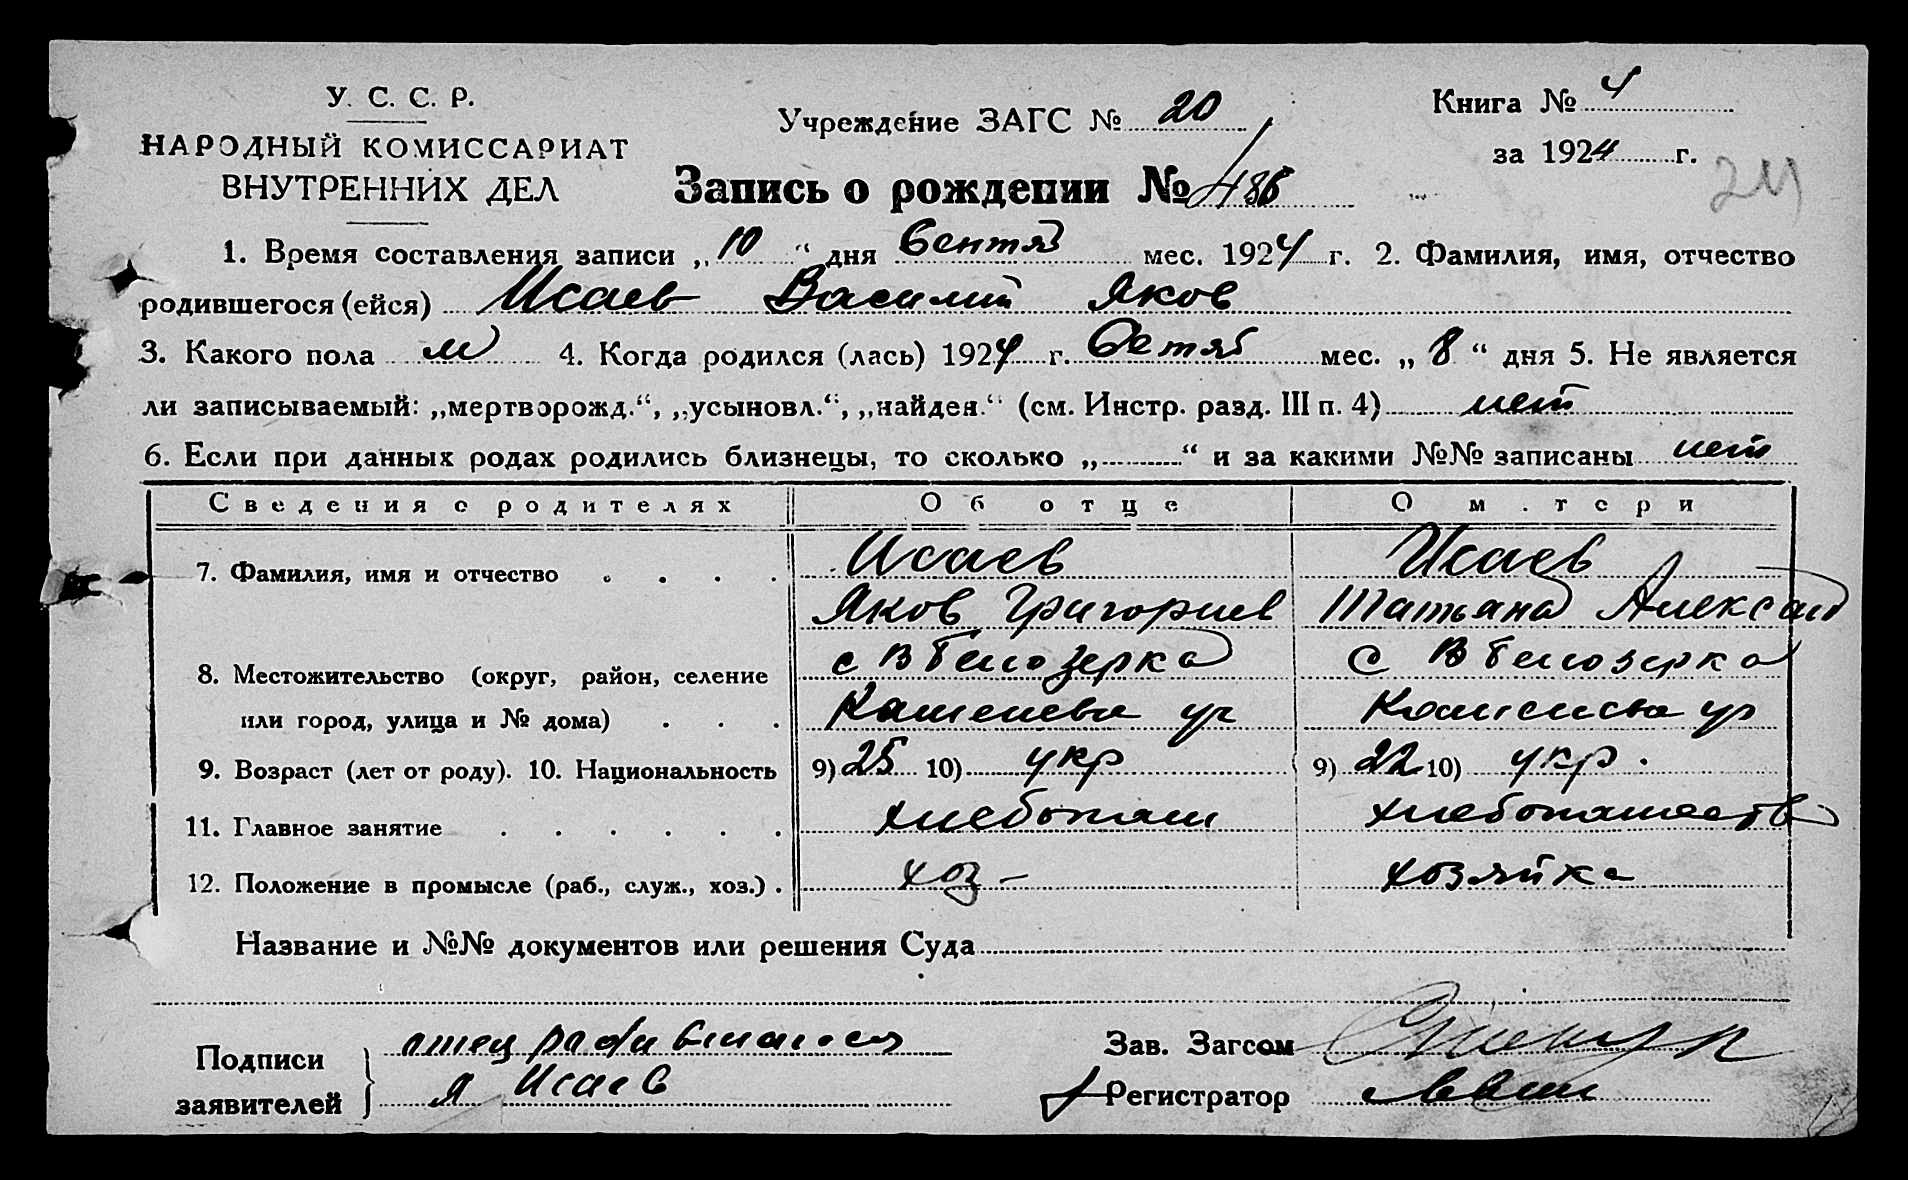 У. С. С. Р.
НАРОДНЫЙ КОМИССАРИАТ
ВНУТРЕННИХ ДЕЛ
Учреждение ЗАГС № 20
Книга № 4
за 1924 г.
24
Запись о рождении № 486
1. Время составления записи „10“ дня Сентяб мес. 1924 г. 2. Фамилия, имя, отчество
родившегося (ейся) Исаев Василий Яков
3. Какого пола м 4. Когда родился (лась) 1924 г. Сетяб мес. „8“ дня 5. Не является
ли записываемый: „мертворожд.“, „усыновл.“, „найден.“ (см. Инстр. разд. III п. 4) нет
6. Если при данных родах родились близнецы, то сколько „ “ и за какими №№ записаны нет
Сведения о родителях Об отце О м.тери
7. Фамилия, имя и отчество Исаев Исаев
Яков Григориев Татьяна Александ
с В Белозерка с В Белозерка
8. Местожительство (округ, район, селение
или город, улица и № дома) ул ул
9. Возраст (лет от роду). 10. Национальность 9) 25 10) укр 9) 22 10) укр.
11. Главное занятие хлебопаш хлебопашеств
12. Положение в промысле (раб., служ., хоз.) хоз- хозяйка
Название и №№ документов или решения Суда
Подписи заявителей
отец
я Исаев
Зав. Загсом
Регистратор